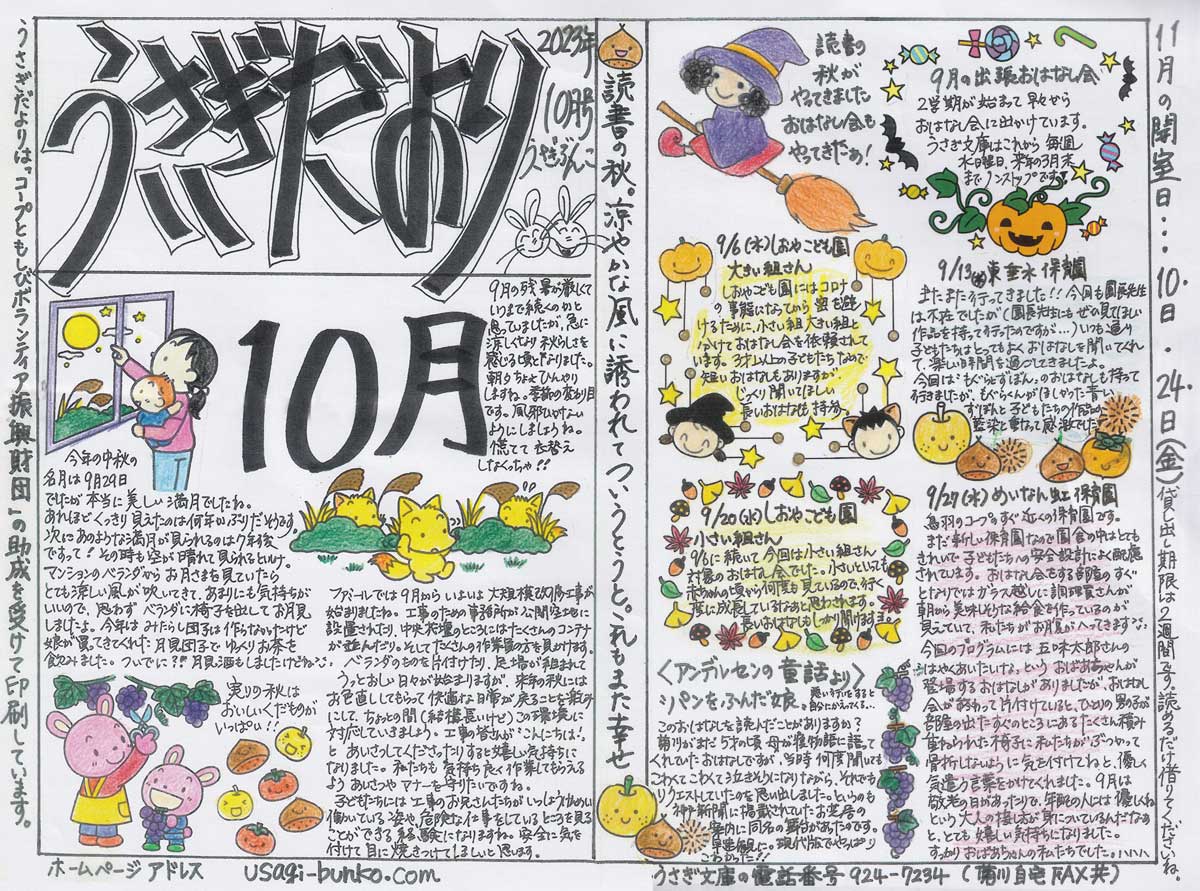 うさぎだより
2023年
10月号
うさぎぶんこ
うさぎだよりは「コープともしびボランティア振興財団」の助成を受けて印刷しています。
10月
9月の残暑が厳しくて
いつまで続くのかと
思っていましたが、急に
涼しくなり秋らしさを
感じる頃となりました。
朝夕ちょっとひんやり
しますね。季節の変わり目
です。風邪ひかない
ようにしましょうね。
慌てて衣替え
しなくっちゃ!!
今年の中秋の
名月は9月29日
でしたが本当に美しい満月でしたね。
あれほどくっきり見えたのは何年かぶりだそうです
次にあのような満月が見られるのは7年後
ですって! その時も空が晴れて見られるといいナ。
マンションのベランダからお月さまを見ていたら
とても涼しい風が吹いてきて、あまりにも気持ちが
いいので、思わずベランダに椅子を出してお月見
しましたよ。今年はみたらし団子は作らなかったけど
娘が買ってきてくれた月見団子でゆっくりお茶を
飲みました。ついでに?? 月見酒もしましたけどね
実りの秋は
おいしいくだものが
いっぱい!!
ファボールでは9月からいよいよ大規模改修工事が
始まりましたね。工事のための事務所が公開空地に
設置されたり、中央花壇のところにはたくさんのコンテナ
が並んだり。そしてたくさんの作業員の方を見かけます。
ベランダのものを片付けたり、足場が組まれて
うっとおしい日々が始まりますが、来年の秋には
お色直ししてもらって快適な日常が戻ることを楽しみ
にして、ちょっとの間(結構長いけど)この環境に
対応していきましょう。工事の皆さんが「こんにちは!」
とあいさつしてくださったりすると嬉しい気持ちに
なりました。私たちも気持ち良く作業してもらえる
ようあいさつやマナーを守りたいですね。
子どもたちには工事のお兄さんたちがいっしょうけんめい
働いている姿や、危険な仕事をしているところを見る
ことができる経験になりますね。安全に気を
付けて目に焼きつけてほしいと思います。
ホームページアドレス usagi-bunko.com
読書の秋。涼やかな風に誘われてついうとうと。これもまた幸せ
読書の
秋が
やってきました
おはなし会も
やってきたぁ!
9月の出張おはなし会
2学期が始まって早々から
おはなし会に出かけています。
うさぎ文庫はこれから毎週
水曜日、来年の3月末
までノンストップです!
9/6(水)しおやこども園
大きい組さん
しおやこども園にはコロナ
の事態になってから密を避
けるために、小さい組大きい組と
分けておはなし会を依頼されて
います。3才以上の子どもたちなので
短いおはなしもありますが、
じっくり聞いてほしい
長いおはなしも持参。
9/13(水)東垂水保育園
またまた行ってきました!! 今回も園長先生
は不在でしたが(園長先生にもぜひ見てほしい
作品を持って行ったのですが…)いつも通り
子どもたちはとってもよくおはなしを聞いてくれ
て、楽しい時間を過ごしてきましたよ。
今回は「もぐらとずぼん」のおはなしも持って
行きましたが、もぐらくんがほしかった青い
ずぼんと子どもたちの作品の
藍染と重なって感激でした
9/20(水)しおやこども園
小さい組さん
9/6に続いて今回は小さい組さん
対象のおはなし会でした。小さいといっても
赤ちゃんの頃から何度も見ているので、行く
度に成長しているなぁと思わされます。
長いおはなしもしっかり聞けます
9/27(水)めいなん虹保育園
鳥羽のコープのすぐ近くの保育園です。
まだ新しい保育園なので園舎の中はとても
きれいで子どもたちへの安全設計によく配慮
されています。おはなし会をする部屋のすぐ
となりではガラス越しに調理員さんが
朝から美味しそうな給食を作っているのが
見えていて、私たちがお腹がへってきます
今回のプログラムには五味太郎さんの
「はやくあいたいな」というおばあちゃんが
登場するおはなしがありましたが、おはなし
会が終わって片付けていると、ひとりの男の子が
部屋の出たすぐのところにあるたくさん積み
重ねられた椅子に私たちがぶつかって
骨折しないように気を付けてねと、優しく
気遣う言葉をかけてくれました。9月は
敬老の日があったりで、年配の人には優しくね
という大人の接し方が身についているんだなぁ
と、とても嬉しい気持ちになりました。
すっかりおばあちゃんの私たちでした。ハハハハ
〈アンデルセンの童話より〉
「パンをふんだ娘」
このおはなしを読んだことがありますか?
蒲川がまだ5才の頃、母が複物語に語って
くれていたおはなしですが、当時何度聞いても
こわくてこわくて泣きそうになりながら、それでも
リクエストしていたのを思い出しました。というのも
神戸新聞に掲載されていたお芝居の
案内に同名の舞台があったのです。
早速観に。現代版でやっぱり
こわかった!!
11月の開室日…10日・24日(金)
貸し出し期限は2週間です。読めるだけ借りてくださいね。
うさぎ文庫の電話番号 924-7234 (蒲川自宅FAX共)